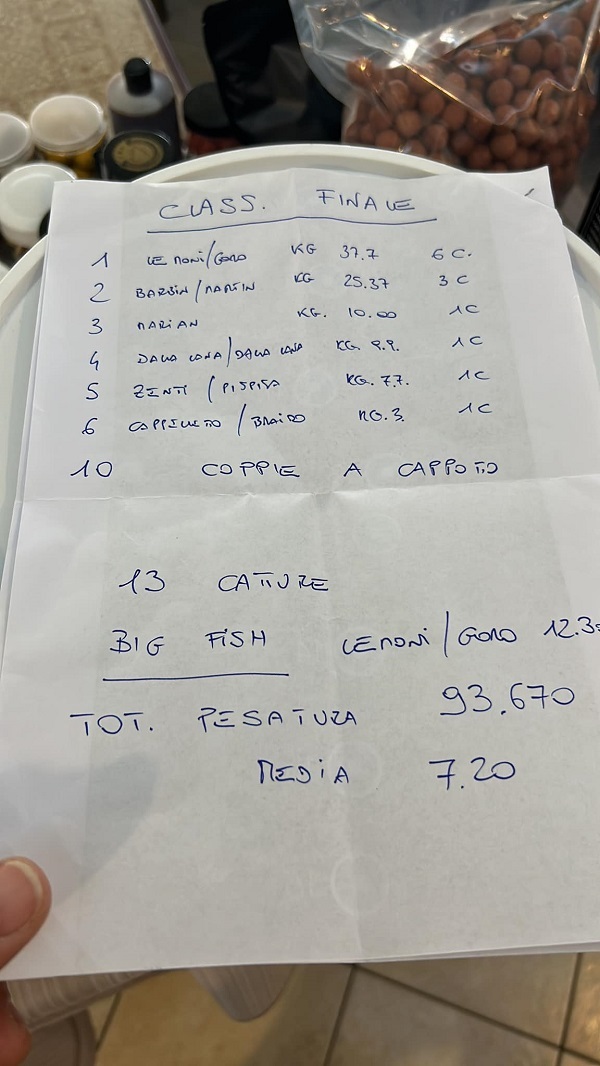 CLASS. FINALE
1 LEMONI/GORO KG 37.7 6 C.
2 BARBIN/MARTIN KG 25.37 3 C
3 MARIAN KG. 10.00 1C
4 DALLA LANA/DALLA LANA KG 9.9. 1C
5 ZENTI/PISPISA KG. 7.7. 1C
6 /BRAIDO KG. 3. 1C
10 COPPIE A CAPPOTTO
13 CATTURE
BIG FISH LEMONI/GORO 12.3
TOT. PESATURA 93.670
MEDIA 7.20